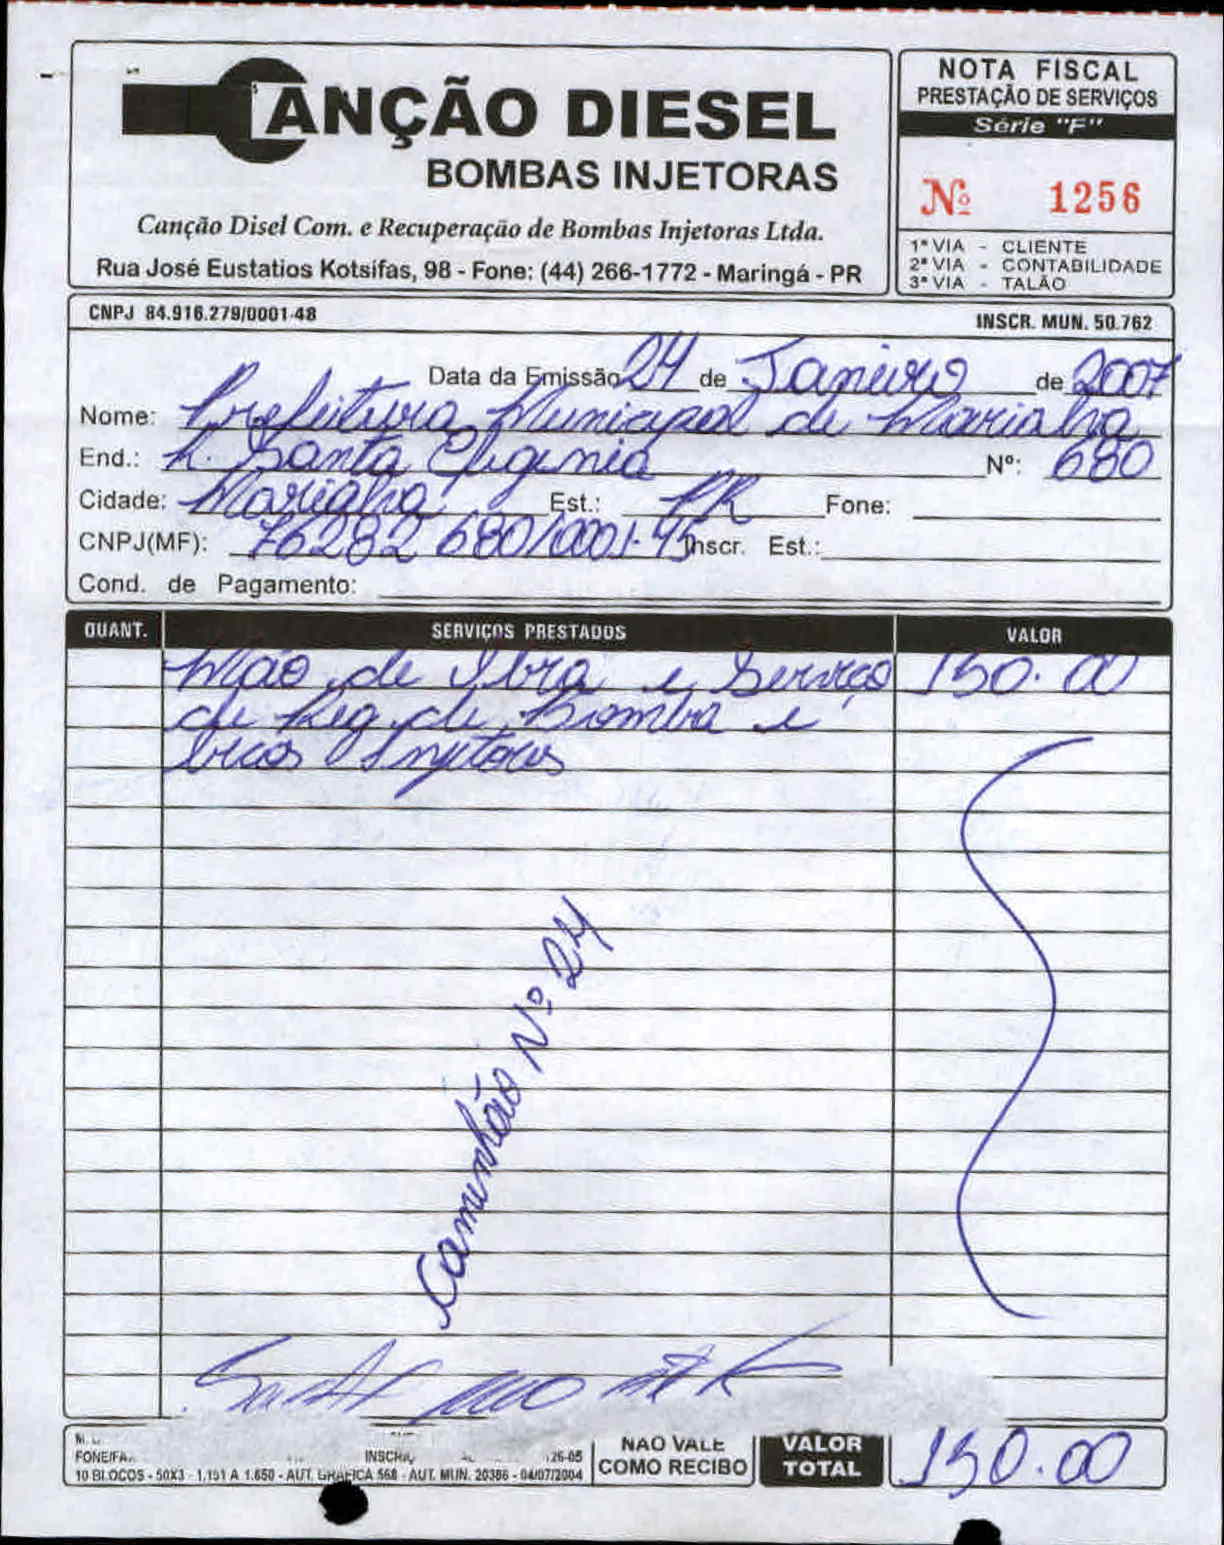 CANÇÃO DIESEL
BOMBAS INJETORAS
Canção Disel Com. e Recuperação de Bombas Injetoras Ltda.
Rua José Eustatios Kotsifas, 98 - Fone: (44) 266-1772 - Maringá - PR
NOTA FISCAL
PRESTAÇÃO DE SERVIÇOS
Série "F"
Nº 1256
1ª VIA - CLIENTE
2ª VIA - CONTABILIDADE
3ª VIA - TALÃO
CNPJ 84.916.279/0001-48
INSCR. MUN. 50.762
Data da Emissão 24 de Janeiro de 2007
Nome: Prefeitura Municipal de Marialva
End.: R. Santa Efigenia Nº: 680
Cidade: Marialva Est.: PR Fone:
CNPJ(MF): 76282 680/0001-45 Inscr. Est.:
Cond. de Pagamento:
QUANT. SERVIÇOS PRESTADOS VALOR
Mão de Obra e Serviço 150.00
de Reg. de Bomba e
bicos Injetores
Caminhão Nº 24
FONE/FA
INSCR
26-05
10 BLOCOS - 50X3 - 1.151 A 1.650 - AUT. GRÁFICA 568 - AUT. MUN. 20386 - 04/07/2004
NÃO VALE
COMO RECIBO
VALOR
TOTAL
150.00